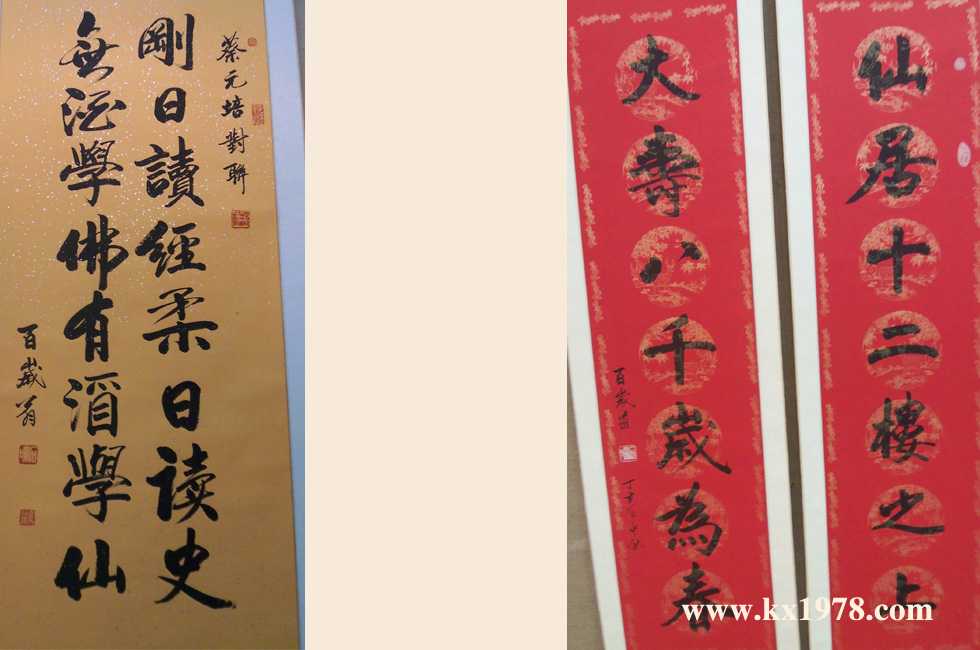 蔡元培對聯
剛日讀經柔日读史
無酒學佛有酒學仙
百歲翁
仙居十二樓之上
大壽八千歲為春
百歲翁
www.kx1978.com